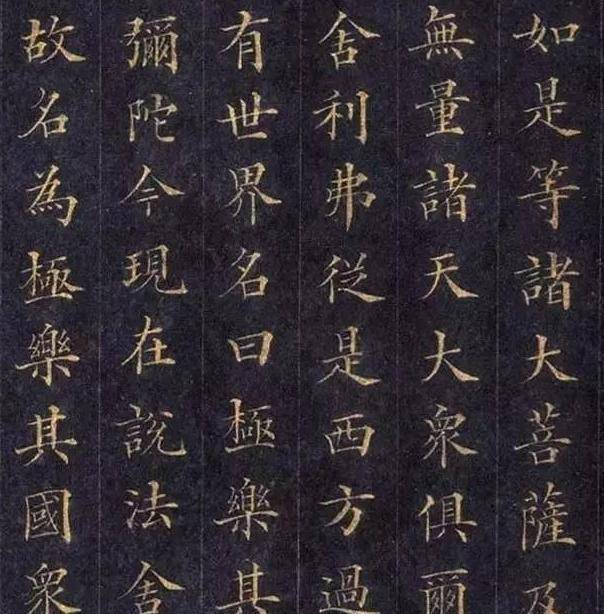 如是等諸大菩薩及
無量諸天大眾俱爾
舍利弗從是西方過
有世界名曰極樂其
彌陀今現在說法舍
故名為極樂其國眾